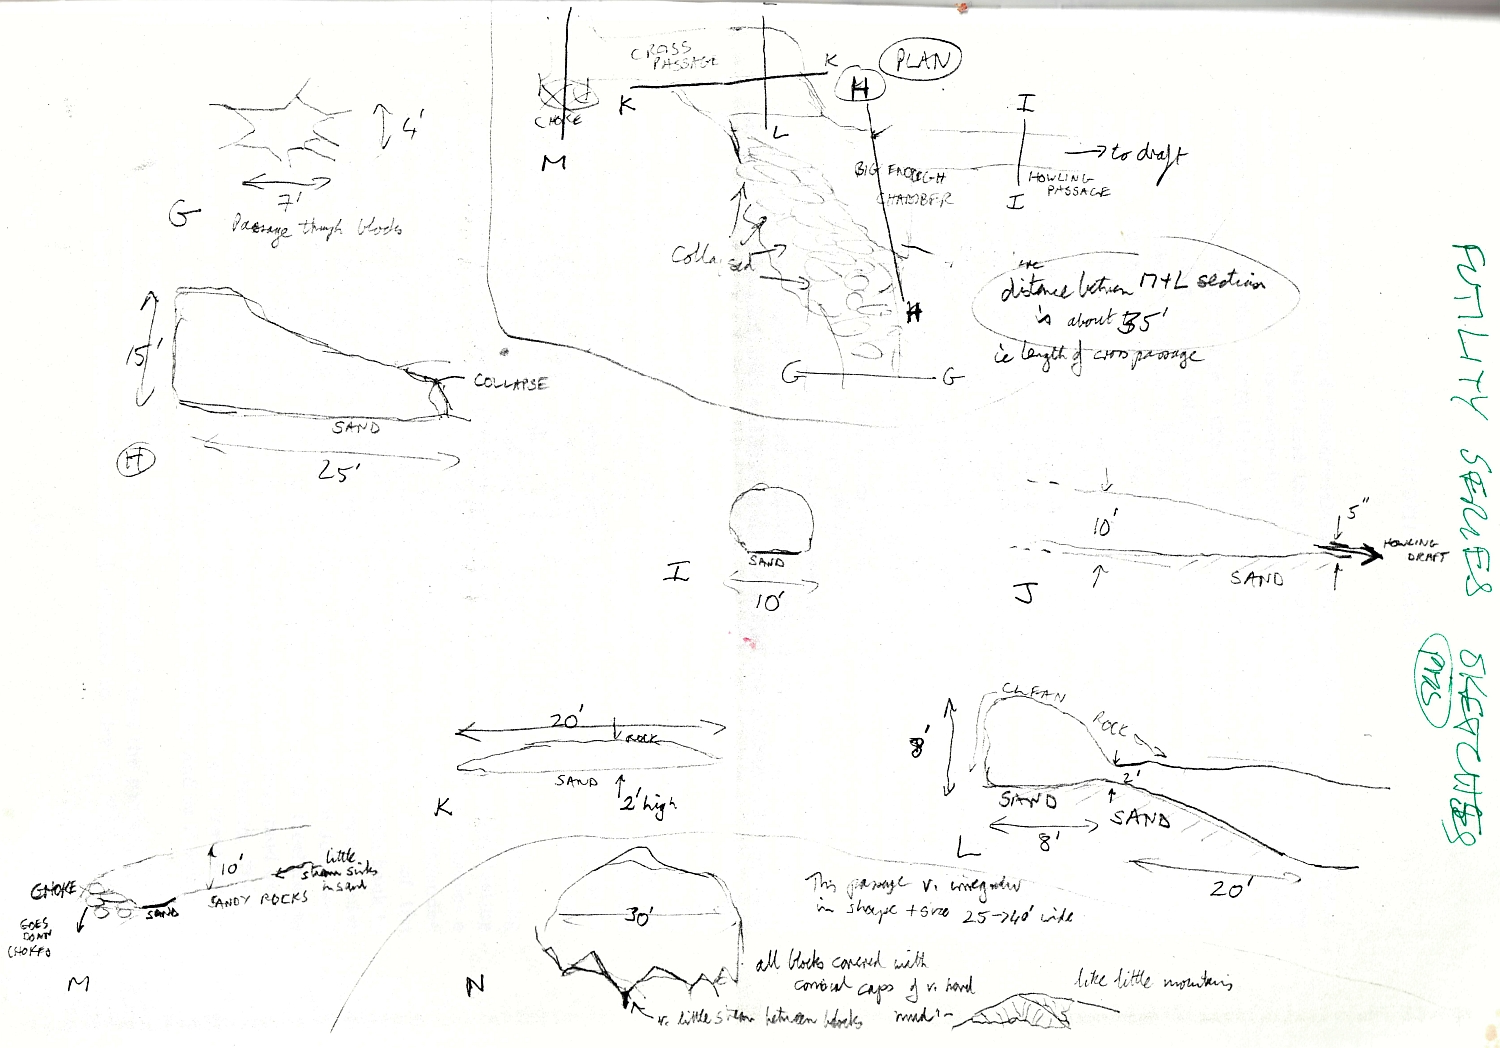 CROSS
PASSAGE
K
K
L
CHOKE
M
PLAN
H
I
→ to draft
HOWLING
PASSAGE
I
BIG ENOUGH
CHAMBER
Collapsed
H
G
G
the
distance between M+L section
is about 35'
ie length of cross passage
4'
7'
G
Passage through blocks
15'
COLLAPSE
SAND
25'
H
I
SAND
10'
10'
5"
HOWLING
DRAFT
SAND
J
FUTILITY SERIES SKETCHES
20'
ROCK
SAND
2' high
K
CLEAN
ROCK
8'
2'
SAND
SAND
8'
L
20'
10'
little
stream sinks
in sand
CHOKE
SAND
SANDY ROCKS
GOES
DOWN
CHOKED
M
30'
N
This passage v. irregular
in shape + size 25→40' wide
all blocks covered with
conical caps of v. hard
mud:-
like little mountains
v. little stream between blocks